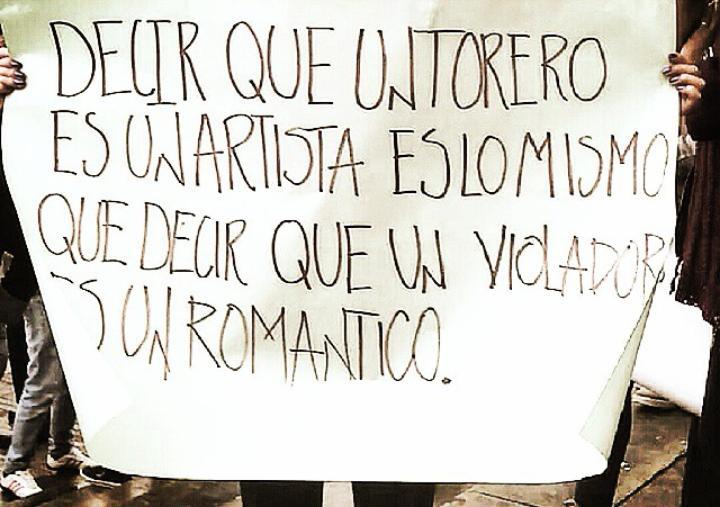 DECIR QUE UN TORERO
ES UN ARTISTA ES LO MISMO
QUE DECIR QUE UN VIOLADOR
ES UN ROMANTICO.